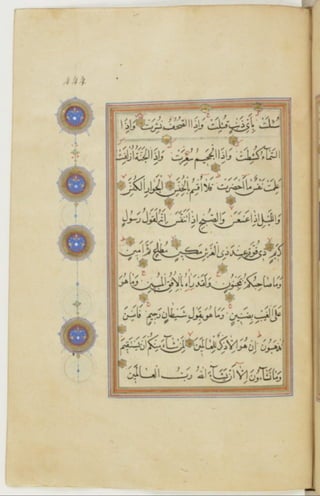 ٤٤٤
سُئِلَتْ بِأَيِّ ذَنْبٍ قُتِلَتْ وَإِذَا الصُّحُفُ نُشِرَتْ وَإِذَا
السَّمَاءُ كُشِطَتْ وَإِذَا الْجَحِيمُ سُعِّرَتْ وَإِذَا الْجَنَّةُ أُزْلِفَتْ
عَلِمَتْ نَفْسٌ مَا أَحْضَرَتْ فَلَا أُقْسِمُ بِالْخُنَّسِ الْجَوَارِ الْكُنَّسِ
وَاللَّيْلِ إِذَا عَسْعَسَ وَالصُّبْحِ إِذَا تَنَفَّسَ إِنَّهُ لَقَوْلُ رَسُولٍ
كَرِيمٍ ذِي قُوَّةٍ عِنْدَ ذِي الْعَرْشِ مَكِينٍ مُطَاعٍ ثَمَّ أَمِينٍ
وَمَا صَاحِبُكُمْ بِمَجْنُونٍ وَلَقَدْ رَآهُ بِالْأُفُقِ الْمُبِينِ وَمَا هُوَ
عَلَى الْغَيْبِ بِضَنِينٍ وَمَا هُوَ بِقَوْلِ شَيْطَانٍ رَجِيمٍ فَأَيْنَ
تَذْهَبُونَ إِنْ هُوَ إِلَّا ذِكْرٌ لِلْعَالَمِينَ لِمَنْ شَاءَ مِنْكُمْ أَنْ يَسْتَقِيمَ
وَمَا تَشَاءُونَ إِلَّا أَنْ يَشَاءَ اللَّهُ رَبُّ الْعَالَمِينَ